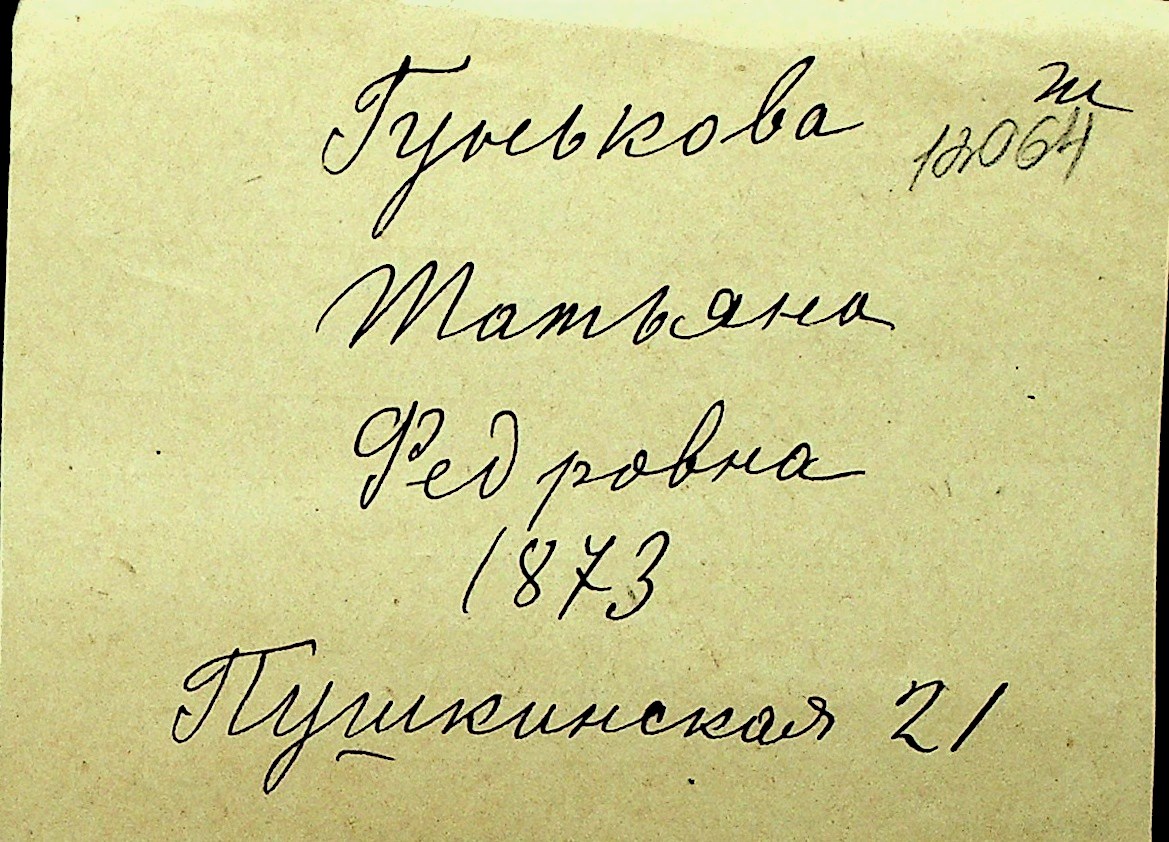 Гунькова
12064
Татьяна
Федровна
1873
Пушкинская 21